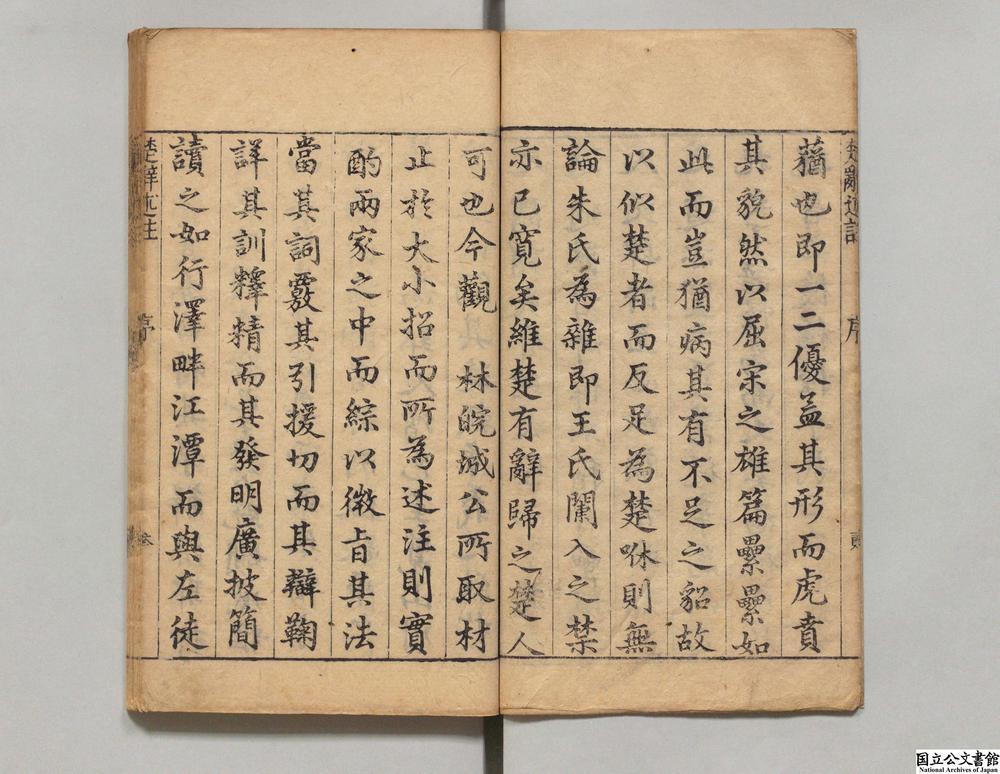 蕕也即一二優孟其形而虎賁
其貌然以屈宋之雄篇纍纍如
此而豈猶病其有不足之貂故
以似楚者而反足為楚咻則無
論朱氏為雜即王氏闌入之禁
亦已寛矣維楚有辭歸之楚人
可也今觀　林皖城公所取材
止於大小招而所為述注則實
酌兩家之中而綜以徴旨其法
當其詞覈其引援切而其辯鞠
詳其訓釋精而其發明廣披簡
讀之如行澤畔江潭而與左徒
楚辭述註
序
国立公文書館
National Archives of Japan